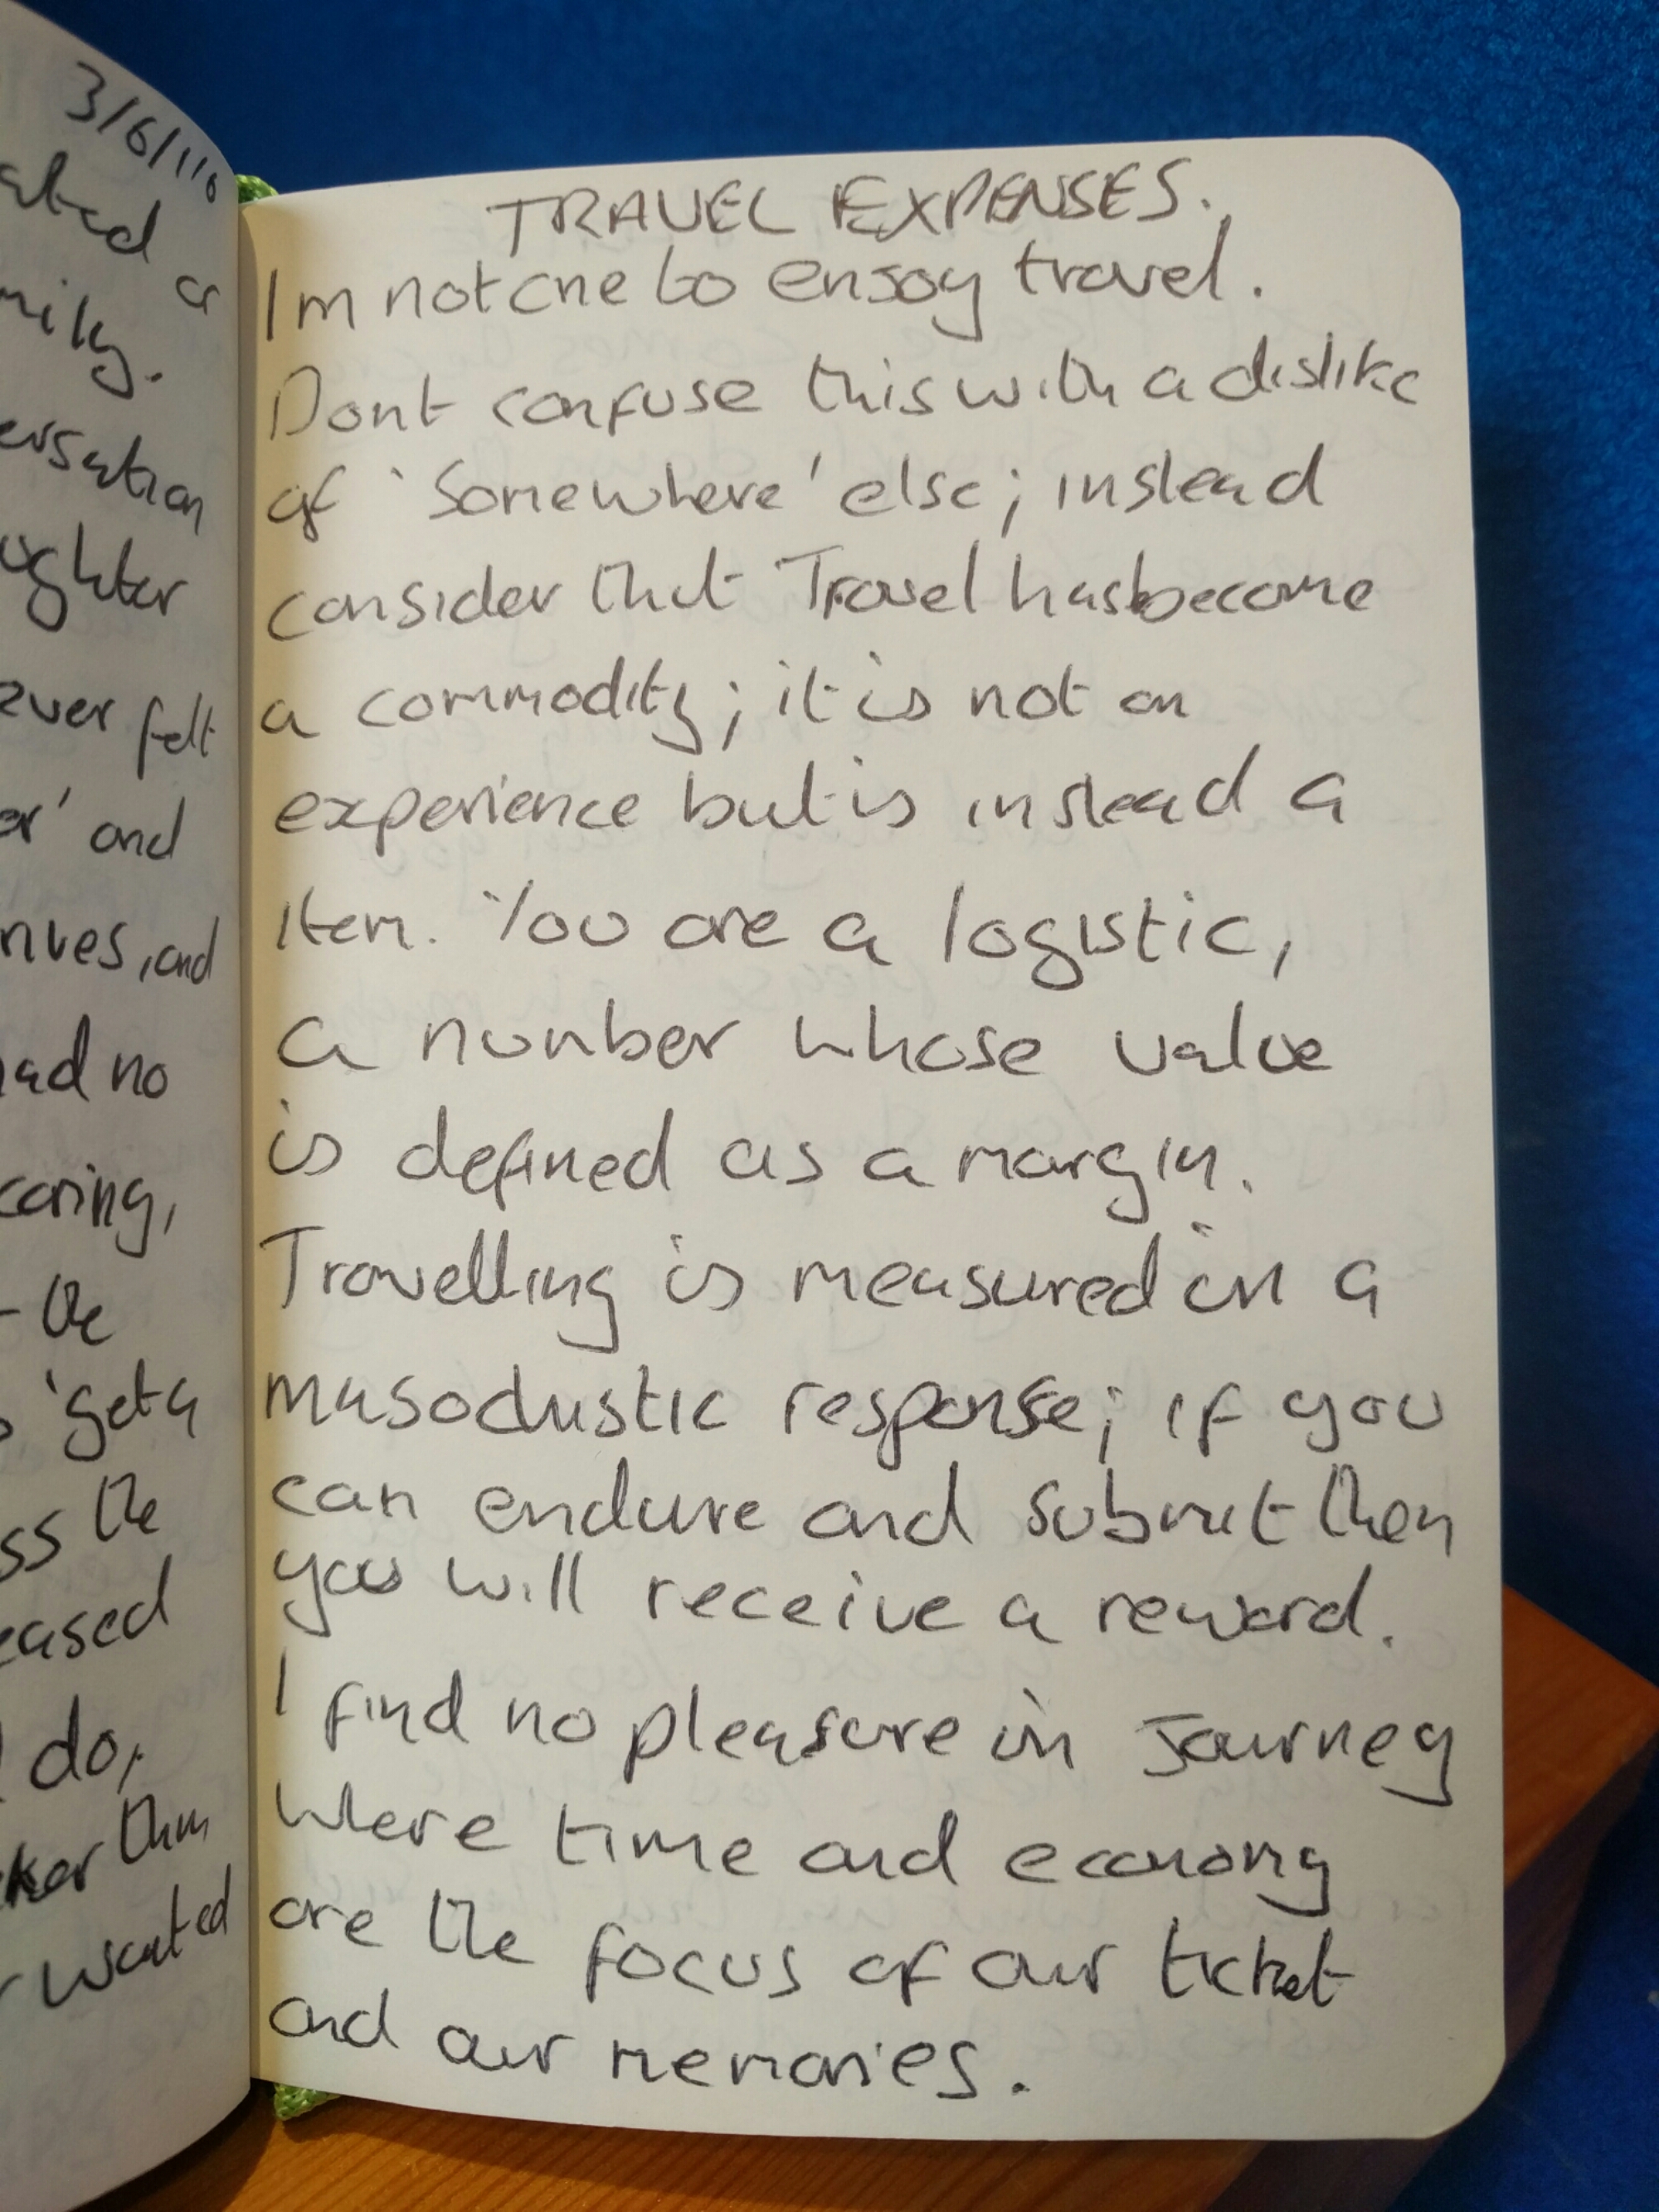 3/6/116
ated a
mily.
ersation
ughter
ever felt
er' and
nives, and
had no
caring,
the
'get a
ss the
eased
do,
ker than
wanted
TRAVEL EXPENSES.
Im not one to enjoy travel.
Dont confuse this with a dislike
of 'Somewhere' else; instead
consider that Travel has become
a commodity; it is not an
experience but is instead a
item. You are a logistic,
a number whose value
is defined as a margin.
Travelling is measured in a
masochistic response; if you
can endure and submit then
you will receive a reward.
I find no pleasure in Journey
Where time and economy
are the focus of our ticket
and our memories.